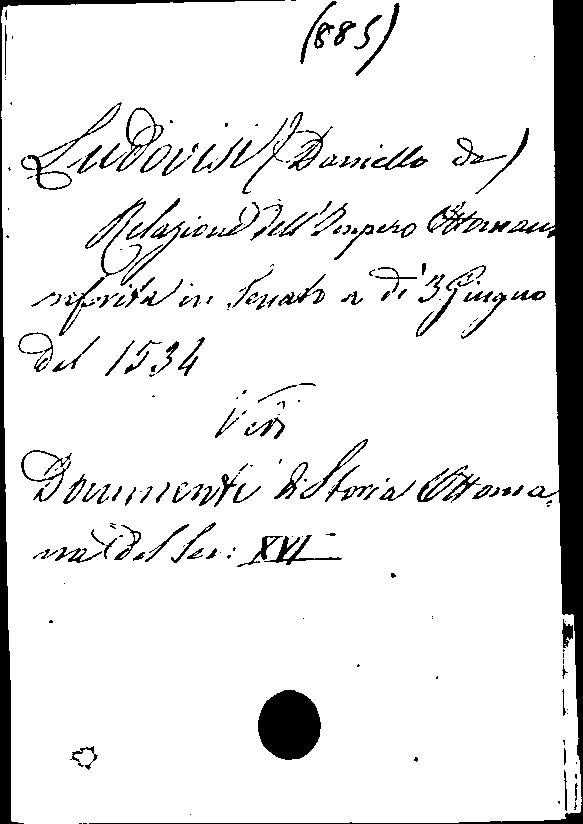 (885)
Ludovisi (Daniello de)
Relazione dell'Impero Ottomano
riferita in Senato a dì 3 Giugno
del 1534
Vedi
Documenti di Storia Ottoma-
na del Sec: XVI